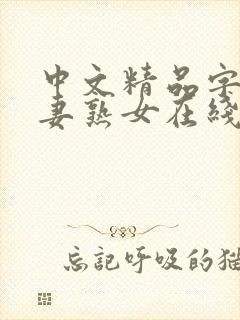 中文精品字
妻熟女在线
忘记呼吸的猫